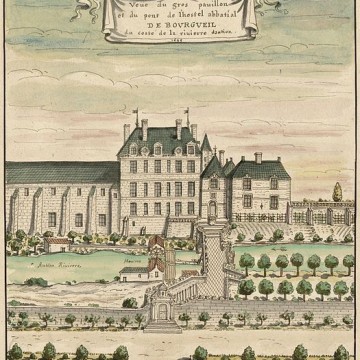 Veue du gros pavillon
et du pont de lhostel abbatial
DE BOURGUEIL
du costé de la rivierre
1699
Autre Rivierre